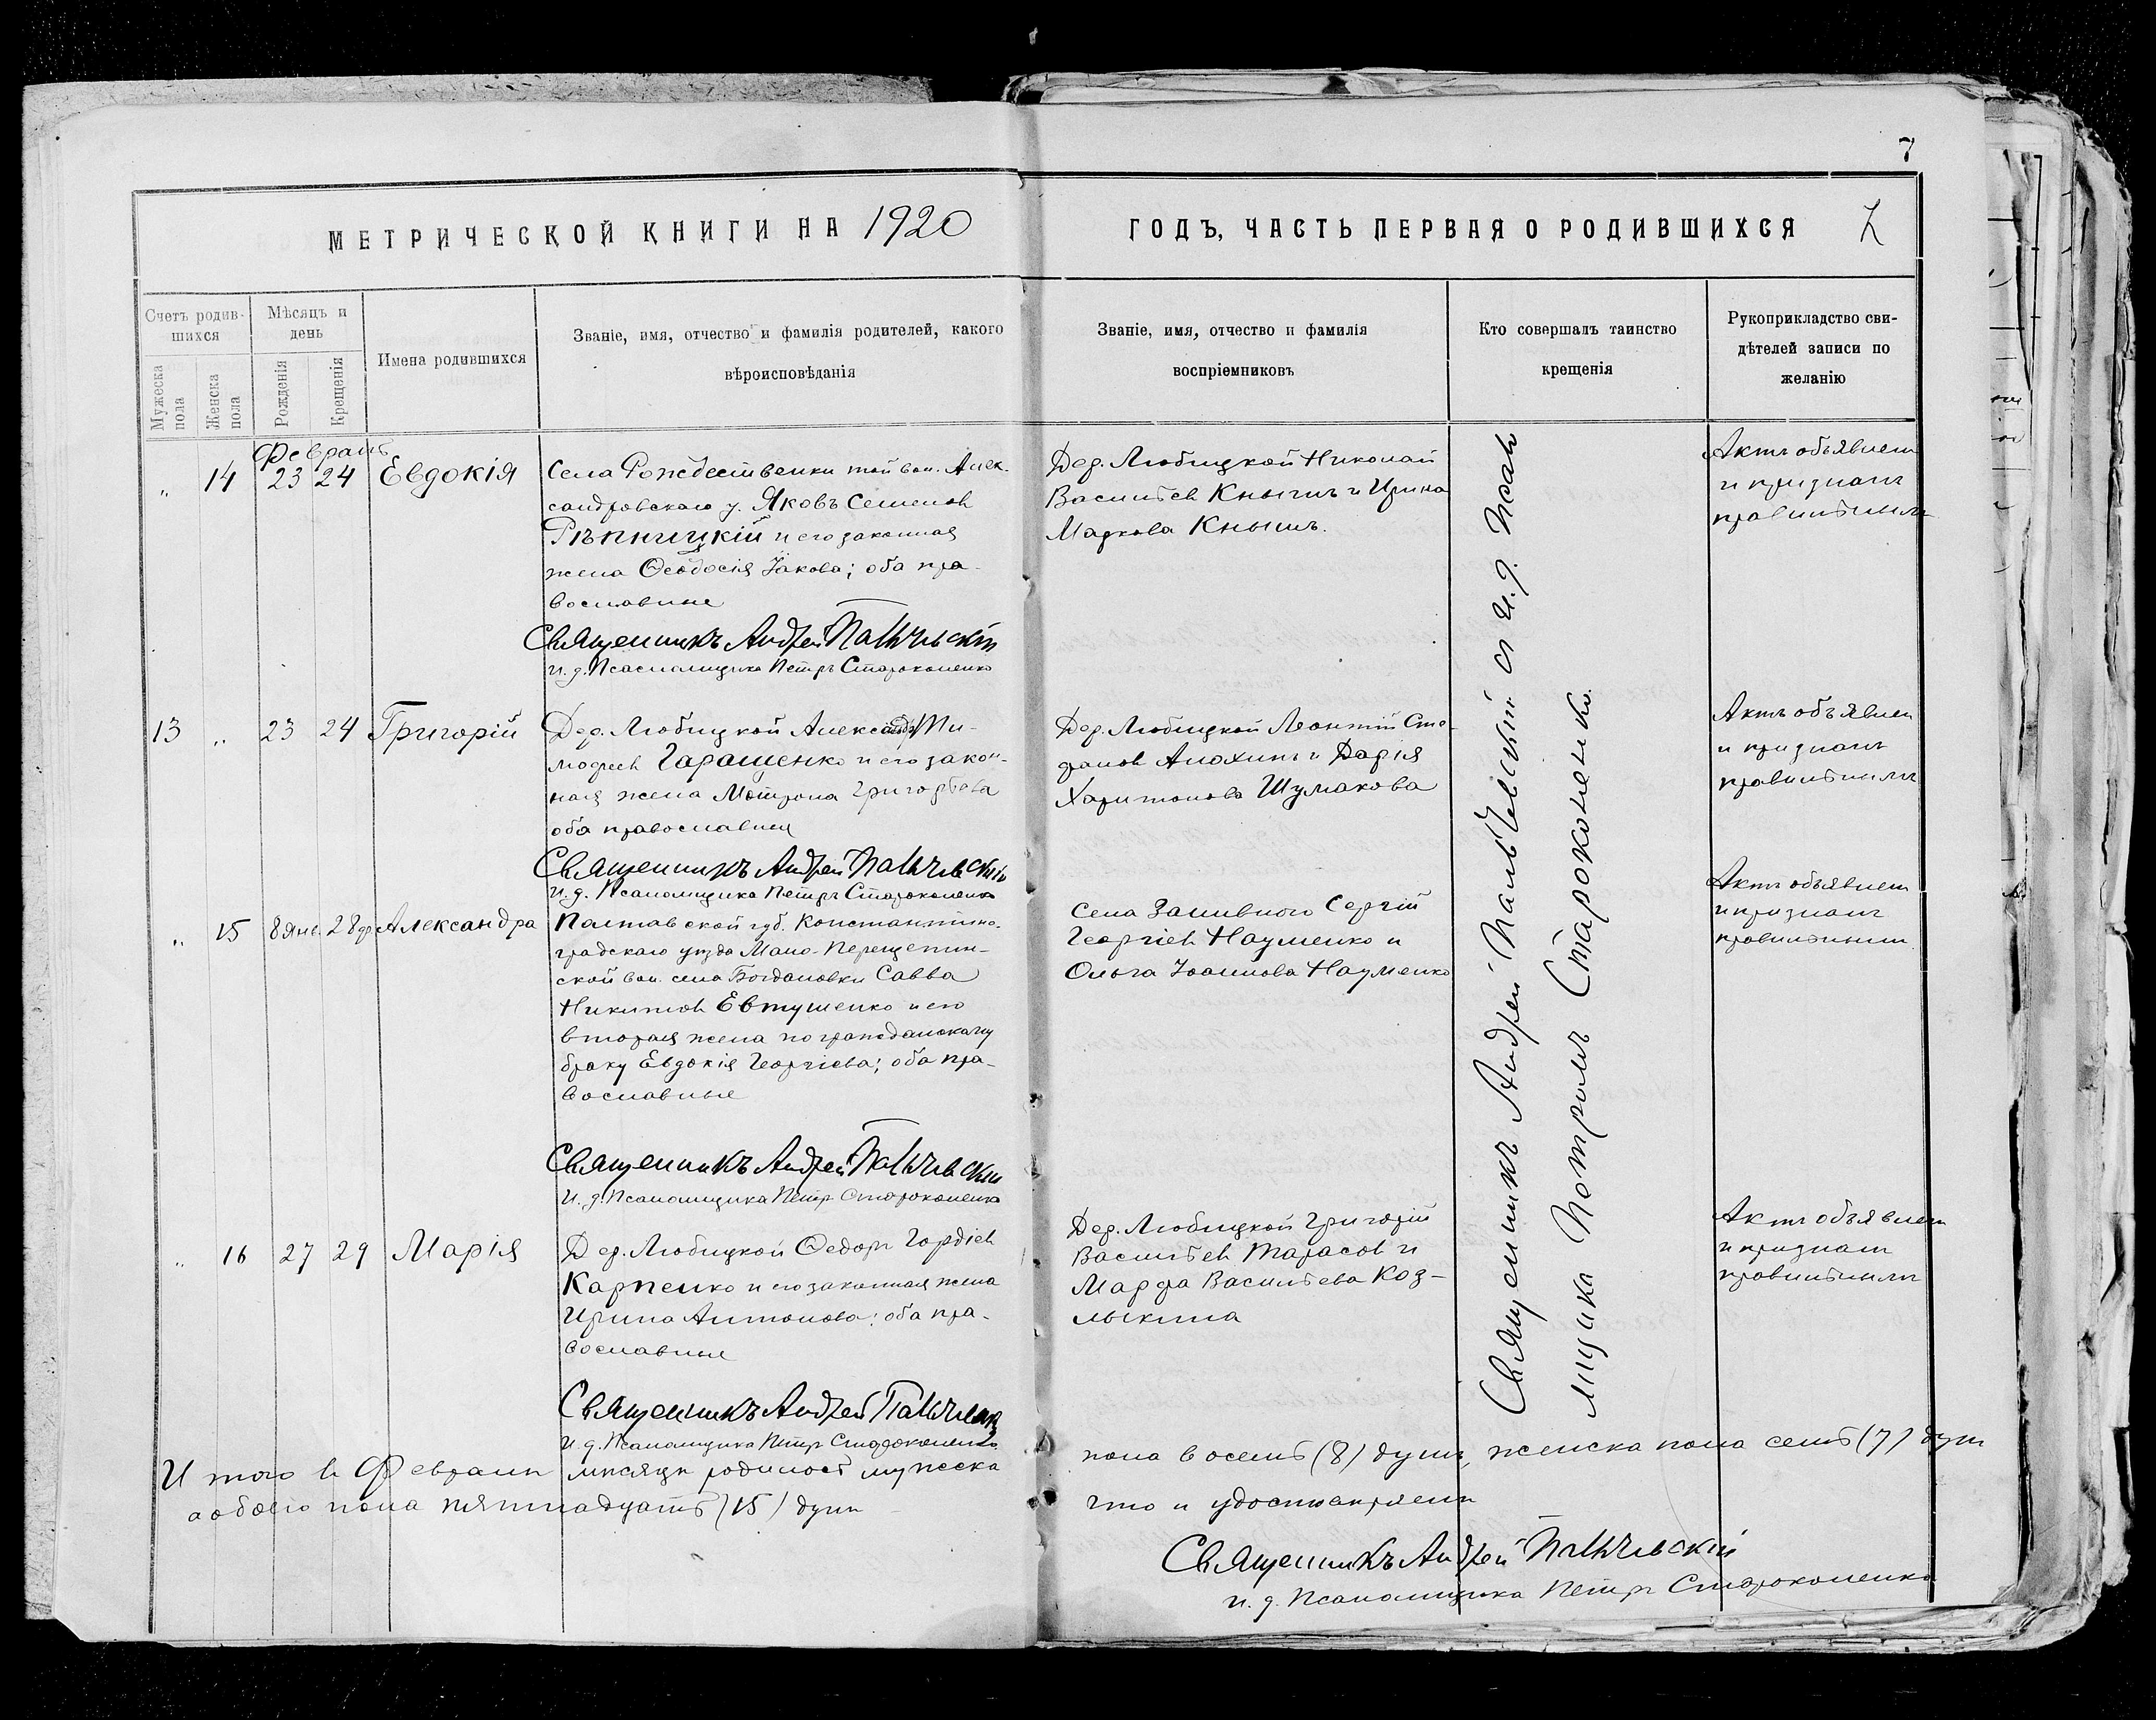 7
МЕТРИЧЕСКОЙ КНИГИ НА 1920
ГОДЪ, ЧАСТЬ ПЕРВАЯ О РОДИВШИХСЯ
Счетъ родив-
шихся
Мужеска
пола
Женска
пола
Мѣсяцъ и
день
Рожденія
Крещенія
Имена родившихся
Званіе, имя, отчество и фамилія родителей, какого
вѣроисповѣданія
Званіе, имя, отчество и фамилія
воспріемниковъ
Кто совершалъ таинство
крещенія
Рукоприкладство сви-
дѣтелей записи по
желанію
Февраль
„ 14 23 24 Евдокія
Села Рождественки той вол. Алек-
сандровскаго у. Яковъ Семеновъ
Рѣпницкій и его законная
жена Ѳеодосія Іакова; оба пра-
вославные
Священникъ Андрей Пальчевскій
и. д. Псаломщика Петръ Староконенко
Дер. Любицкой Николай
Васильевъ Кнышъ и Ирина
Маркова Кнышъ.
Актъ объявленъ
и признанъ
правильнымъ
13 „ 23 24 Григорій
Дер. Любицкой Александръ Ти-
моѳеевъ Гаращенко и его закон-
ная жена Мотрона Григорьева
оба православные
Священникъ Андрей Пальчевскій
и. д. Псаломщика Петръ Староконенко
Дер. Любицкой Леонтій Сте-
фановъ Алохинъ и Дарія
Харитонова Шумакова
Актъ объявленъ
и признанъ
правильнымъ
„ 15 8 янв. 28 ф. Александра
Полтавской губ. Константино-
градскаго уѣзда Мало-Перещепин-
ской вол. села Богдановки Савва
Никитовъ Евтушенко и его
вторая жена по гражданскому
браку Евдокія Георгіева; оба пра-
вославные
Священникъ Андрей Пальчевскій
И. д. Псаломщика Петръ Староконенко
Села Заливного Сергій
Георгіевъ Науменко и
Ольга Іоаннова Науменко
Актъ объявленъ
и признанъ
правильнымъ
„ 16 27 29 Марія
Дер. Любицкой Ѳедоръ Гордіевъ
Карпенко и его законная жена
Ирина Антонова; оба пра-
вославные
Священникъ Андрей Пальчевскій
И. д. Псаломщика Петръ Староконенко
Дер. Любицкой Григорій
Васильевъ Тарасовъ и
Марфа Васильева Коз-
лыкина
Актъ объявленъ
и признанъ
правильнымъ
Священникъ Андрей Пальчевскій съ и. д. Псало
мщика Петромъ Староконенко.
И того въ Февралѣ мѣсяцѣ родилось мужеска
пола восемь (8) душъ, женска пола семь (7) душъ
а обоего пола пятнадцать (15) душъ
что и удостовѣряемъ
Священникъ Андрей Пальчевскій
и. д. Псаломщика Петръ Староконенко